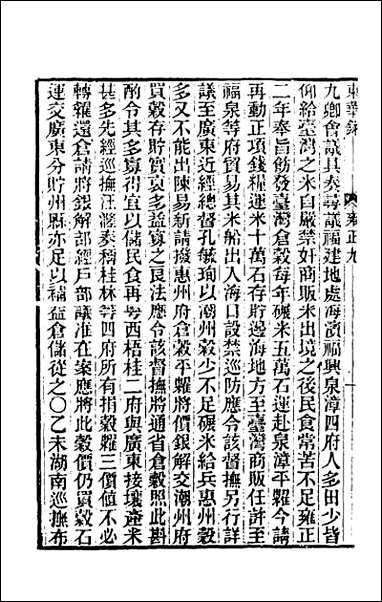 東華錄 雍正九
九卿會議具奏尋議福建地處海濱福興泉漳四府人多田少皆
仰給臺灣之米自嚴禁奸商販米出境之後民食常苦不足雍正
二年奉旨飭發臺灣倉穀每年碾米五萬石運赴泉漳平糶今請
再動正項錢糧運米十萬石存貯邊海地方至臺灣商販任許至
福泉等府貿易其米船出入海口設禁巡防應令該督撫另行詳
議至廣東近經總督孔毓珣以潮州穀少不足碾米給兵惠州穀
多又不能出陳易新請撥惠州府倉穀平糶將價銀解交潮州府
買穀存貯實裒多益寡之良法應令該督撫將通省倉穀照此斟
酌令其多寡得宜以儲民食再粵西梧桂二府與廣東接壤產米
甚多先經巡撫汪漋奏稱桂林等四府所有捐穀糶三價值不必
轉糴還倉請將銀解部經戶部議准在案應將此穀價仍買穀石
運交廣東分貯州縣亦足以裨益倉儲從之〇乙未湖南巡撫布